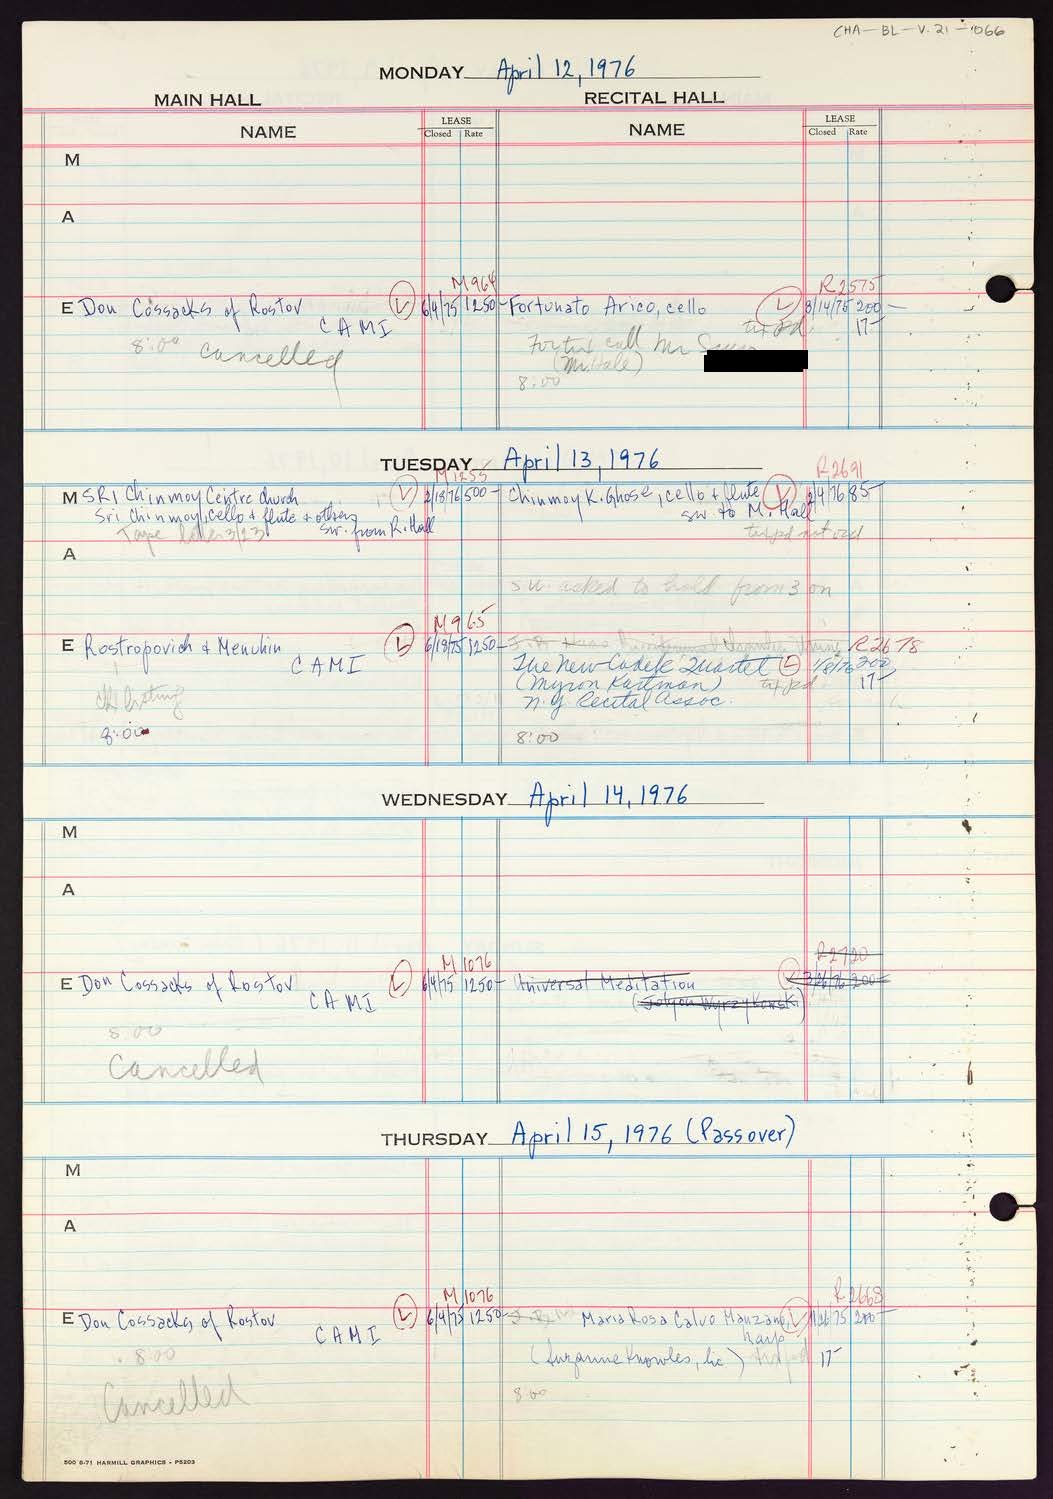 CHA-BL-V.21-066
MONDAY April 12, 1976
MAIN HALL RECITAL HALL
NAME LEASE Closed Rate NAME LEASE Closed Rate
M
A
M964 R2575
E Don Cossacks of Rostov L 6/4/75 1250- Fortunato Arico, cello L 8/14/75 200-
CAMI tix pd 17-
8:00 Cancelled For tix call Mr
(Mr. Hale)
8:00
TUESDAY April 13, 1976
M1255 R2691
M SRI Chinmoy Centre Church L 2/18/76 500- Chinmoy K. Ghose, cello & flute L 2/4/76 85-
Sri Chinmoy, cello & flute & others sw. from R. Hall sw to M. Hall
Tape later 3/23 tix pd not used
A
SW. asked to hold from 3 on
M965
E Rostropovich & Menuhin L 6/18/75 1250- R2678
CAMI The New Cadek Quartet L 1/8/76 200-
(Myron Kartman) tix pd 17-
N.Y. Recital Assoc.
8:00 8:00
WEDNESDAY April 14, 1976
M
A
M1076 R2720
E Don Cossacks of Rostov L 6/4/75 1250- Universal Meditation L 3/26/76 200-
CAMI (Jolyon Wyrzykowski)
8:00
Cancelled
THURSDAY April 15, 1976 (Passover)
M
A
M1076 R2668
E Don Cossacks of Rostov L 6/4/75 1250- Maria Rosa Calvo Manzano, L 200-
CAMI harp
8:00 (Suzanne Knowles, lic) tix pd 17-
Cancelled 8:00
500 6-71 HARMILL GRAPHICS - P5203